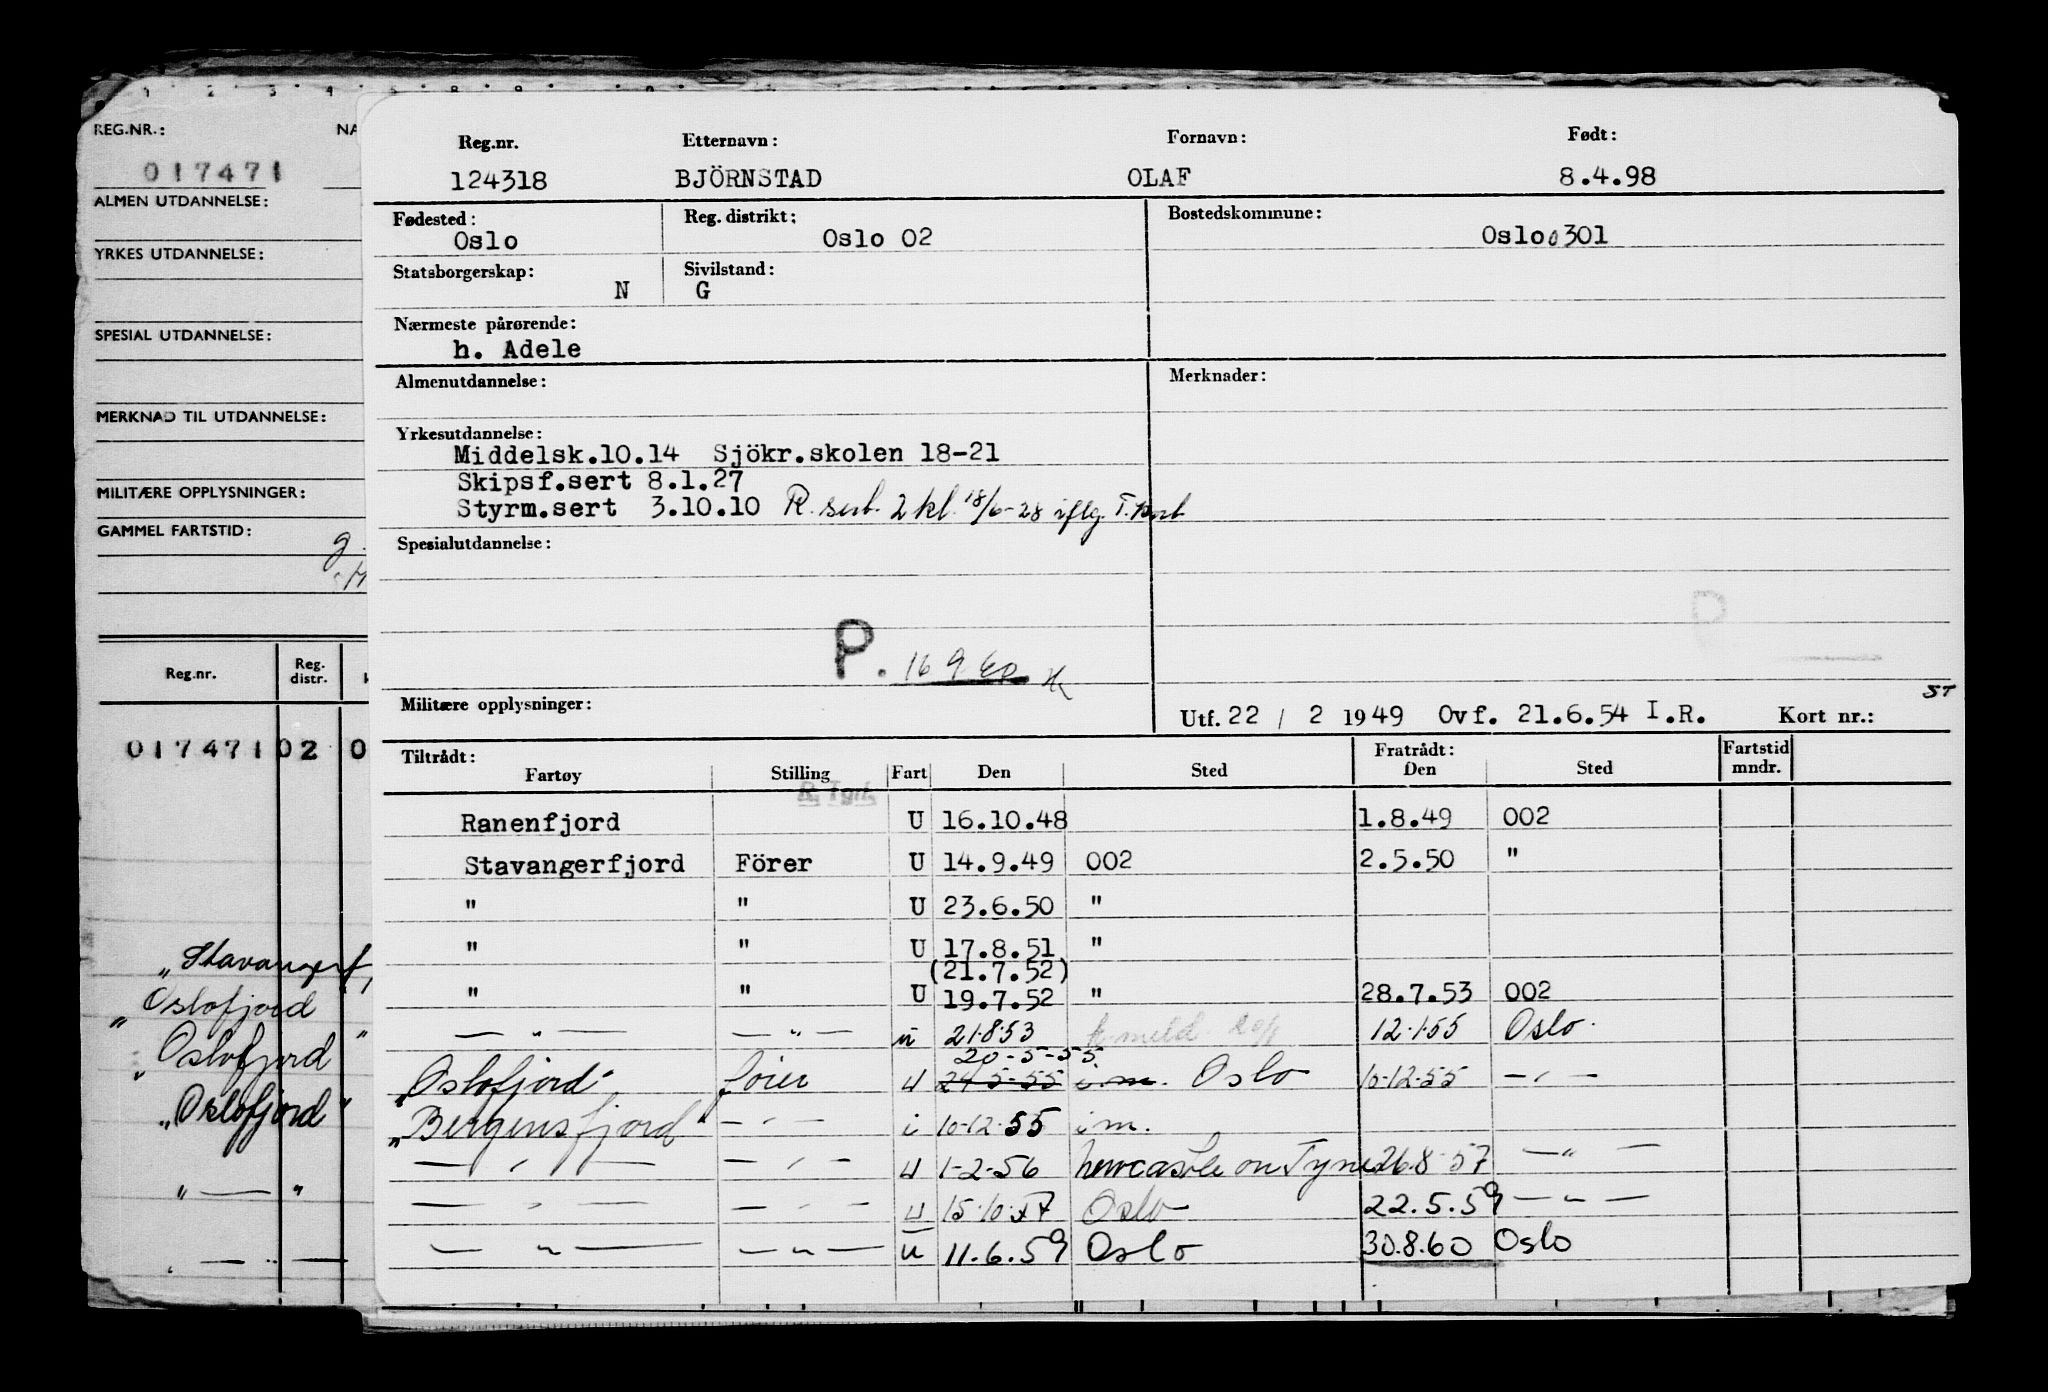 REG.NR.: NA
017471
ALMEN UTDANNELSE:
YRKES UTDANNELSE:
SPESIAL UTDANNELSE:
MERKNAD TIL UTDANNELSE:
MILITÆRE OPPLYSNINGER:
GAMMEL FARTSTID:
Reg.nr. Reg. distr.
017471 02 0
"Stavangerf
"Oslofjord"
"Oslofjord"
"Oslofjord"
" — "
Reg.nr. Etternavn: Fornavn: Født:
124318 BJÖRNSTAD OLAF 8.4.98
Fødested: Reg. distrikt: Bostedskommune:
Oslo Oslo 02 Oslo 0301
Statsborgerskap: Sivilstand:
N G
Nærmeste pårørende:
h. Adele
Almenutdannelse: Merknader:
Yrkesutdannelse:
Middelsk.10.14 Sjökr.skolen 18-21
Skipsf.sert 8.1.27
Styrm.sert 3.10.10 R. sert. 2 kl. 18/6-28 iflg. T.
Spesialutdannelse:
P. 16 9 60
P
Militære opplysninger: ST
Utf. 22 / 2 1949 Ovf. 21.6.54 I.R. Kort nr.:
Tiltrådt: Fratrådt: Fartstid
Fartøy Stilling Fart Den Sted Den Sted mndr.
Ranenfjord U 16.10.48 1.8.49 002
Stavangerfjord Förer U 14.9.49 002 2.5.50 "
" " U 23.6.50 "
" " U 17.8.51 "
(21.7.52)
" " U 19.7.52 " 28.7.53 002
— " — — " — u 21.8.53 meld. 12.1.55 Oslo.
20-5-55
"Oslofjord" fører U 24-5-55 i.m. Oslo 10-12-55 — " —
"Bergensfjord" — " — i 10-12-55 i m.
— " — — " — U 1-2-56 Newcastle on Tyne 26.8.57 — " —
— " — — " — U 15.10.57 Oslo 22.5.59 — " —
— " — — " — u 11.6.59 Oslo 30.8.60 Oslo